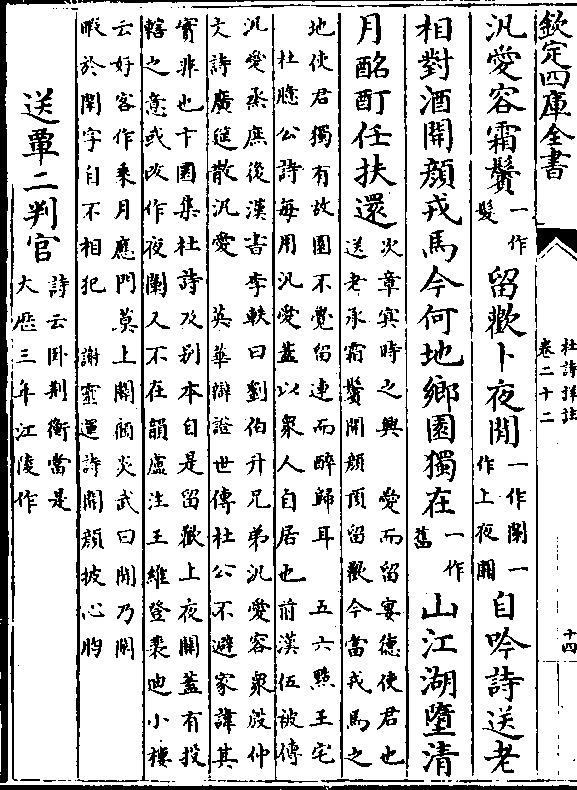 欽定四庫全書
杜詩詳註
卷二十二
十四
汎愛容霜鬢一作髮留歡卜夜閒一作闌一作上夜關自吟詩送老
相對酒開顔戎馬今何地鄉園獨在一作舊山江湖墮清
月酩酊任扶還次章賓時之興 愛而留宴德使君也
送老承霜鬢開顔頂留歡今當戎馬之
地使君獨有故園不覺留連而醉歸耳 五六點王宅
杜臆公詩每用汎愛葢以衆人自居也 前漢伍被傳
汎愛蒸庶後漢書李軼曰劉伯升兄弟汎愛容衆殷仲
文詩廣筵散汎愛 英華辯證世傳杜公不避家諱其
實非也卞圜集杜詩及别本自是留歡上夜關葢有投
轄之意或改作夜闌又不在韻盧注王維登裴迪小樓
云好客作乘月應門莫上關顧炎武曰閒乃閒
暇於閑字自不相犯 謝靈運詩開顔披心胸
送覃二判官詩云卧荆衡當是
大歴三年江陵作